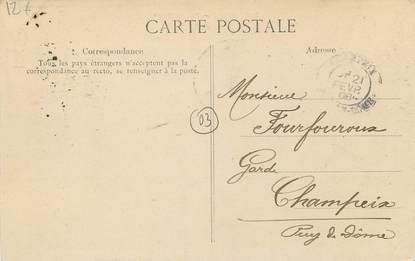 12 €
CARTE POSTALE
Correspondance
Tous les pays étrangers n'acceptent pas la
correspondance au recto, se renseigner à la poste.
Adresse
21
Monsieur
Fourfouroux
Garde
Champeix
Puy de Dôme
03